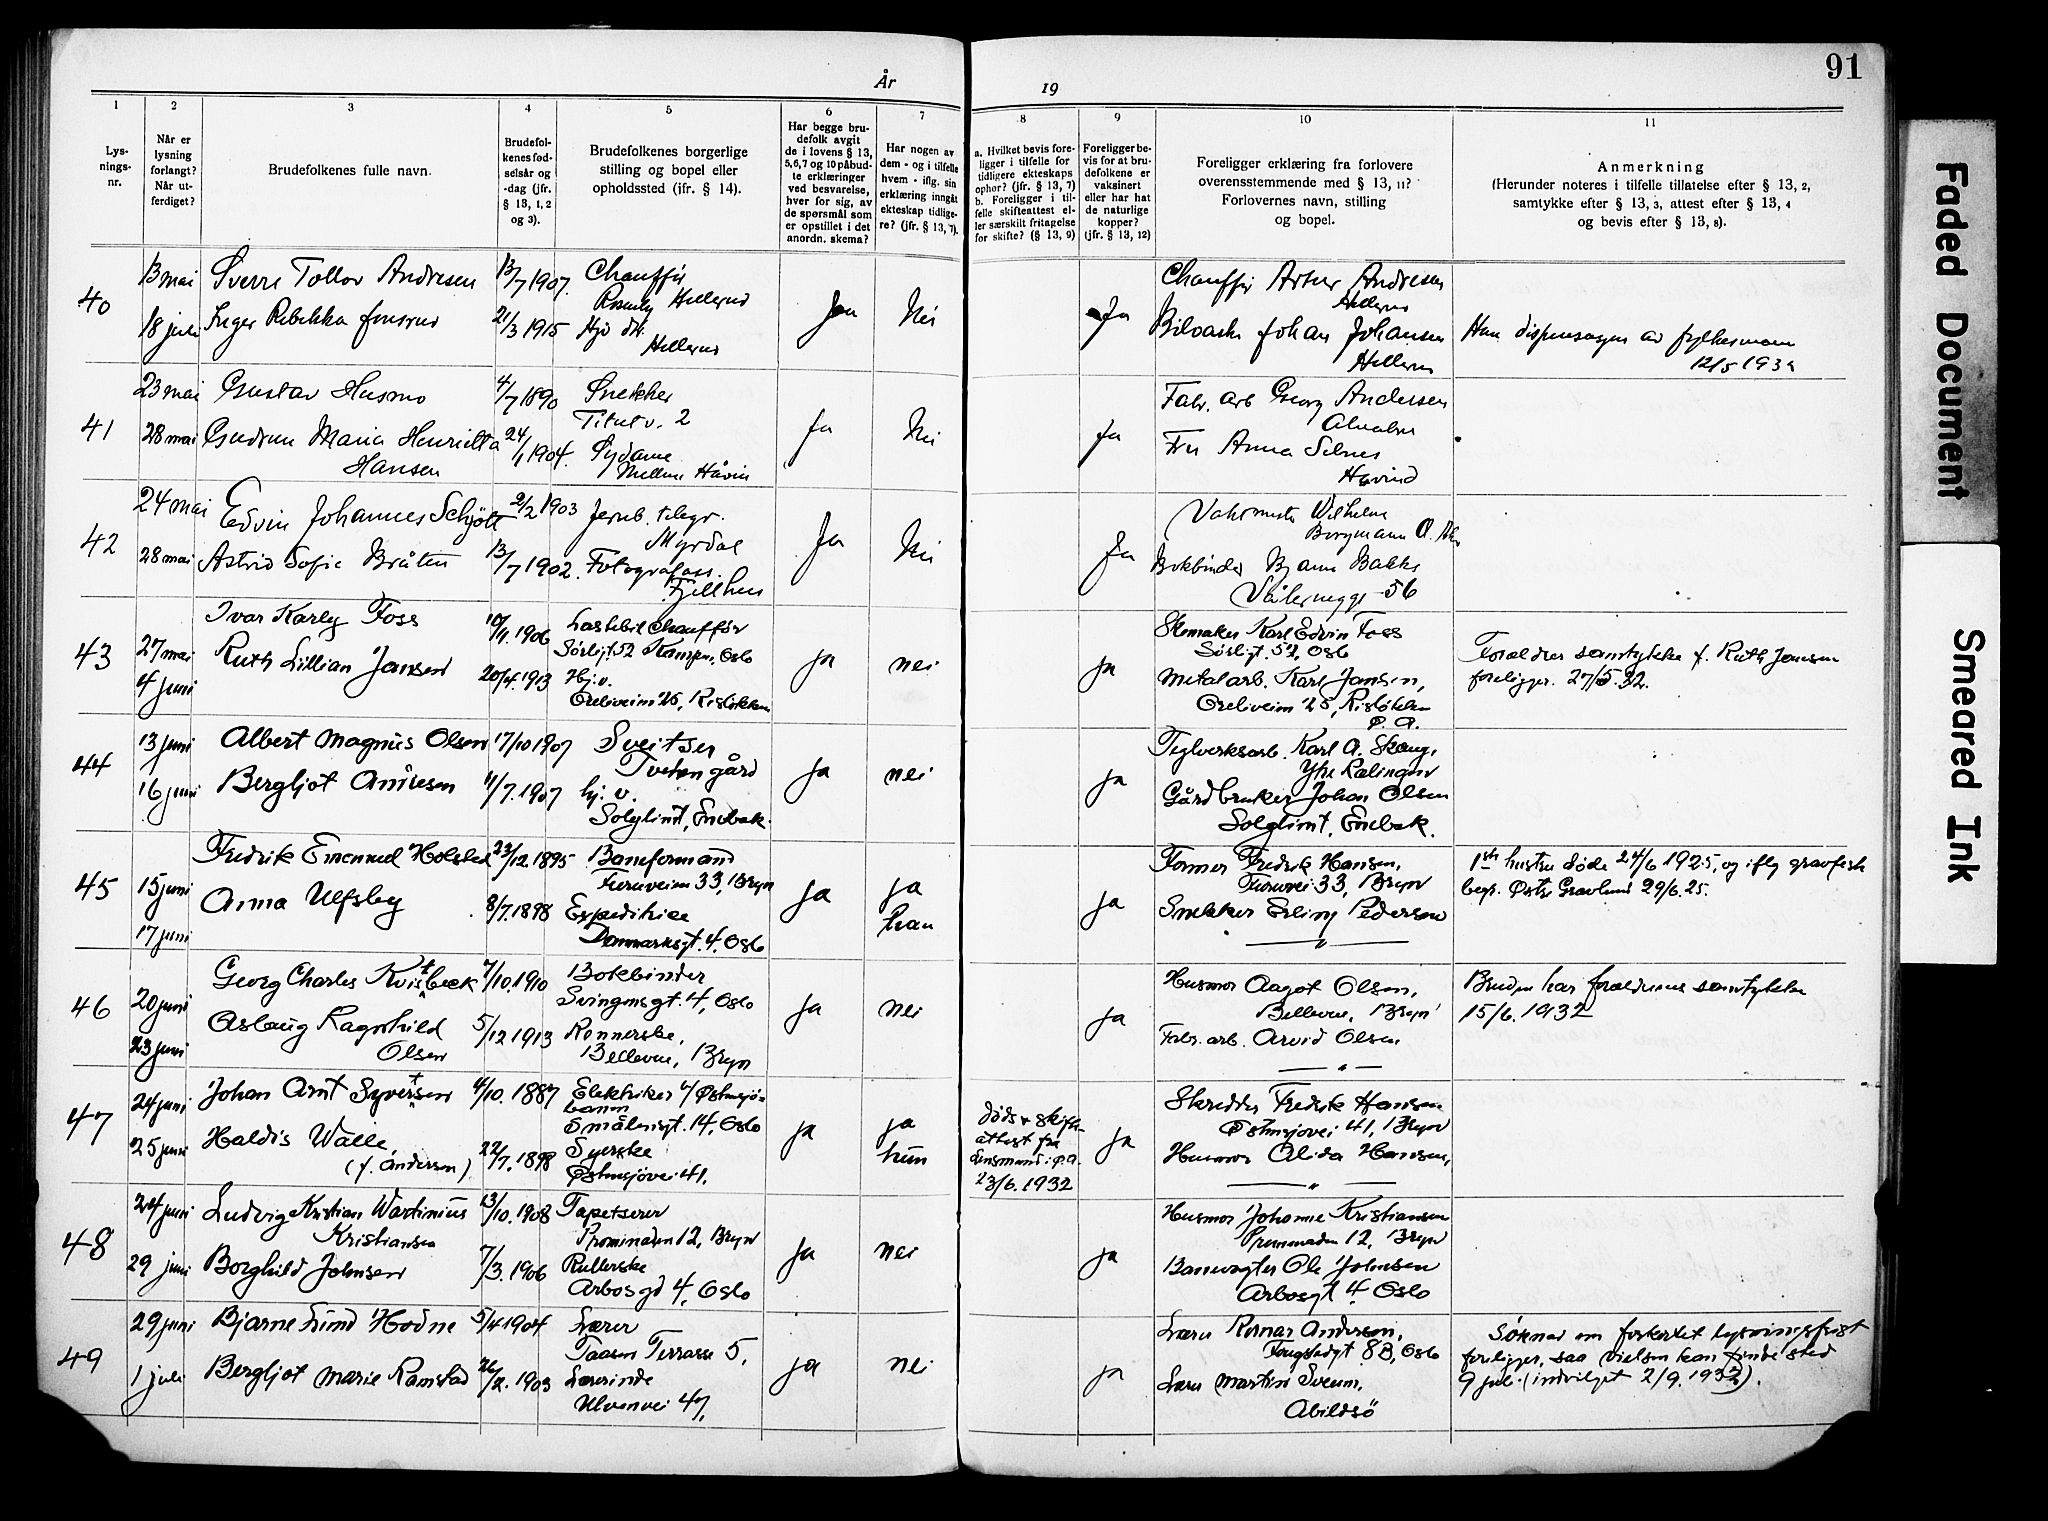 91
År 19
1
2
3
4
5
6
7
8
9
10
11
Lys-
nings-
nr.
Når er
lysning
forlangt?
Når ut-
ferdiget?
Brudefolkenes fulle navn.
Brudefol-
kenes fød-
selsår og
-dag (jfr.
§ 13, 1, 2
og 3).
Brudefolkenes borgerlige
stilling og bopel eller
opholdssted (jfr. § 14).
Har begge bru-
defolk avgit
de i lovens § 13,
5, 6, 7 og 10 påbud-
te erklæringer
ved besvarelse,
hver for sig, av
de spørsmål som
er opstillet i det
anordn. skema?
Har nogen av
dem - og i tilfelle
hvem - iflg. sin
erklæring inngått
ekteskap tidlige-
re? (jfr. § 13, 7).
a. Hvilket bevis fore-
ligger i tilfelle for
tidligere ekteskaps
ophør? (jfr. § 13, 7)
b. Foreligger i til-
felle skifteattest el-
ler særskilt fritagelse
for skifte? (§ 13, 9)
Foreligger be-
vis for at bru-
defolkene er
vaksinert
eller har hat
de naturlige
kopper?
(jfr. § 13, 12)
Foreligger erklæring fra forlovere
overensstemmende med § 13, 11?
Forlovernes navn, stilling
og bopel.
Anmerkning
(Herunder noteres i tilfelle tillatelse efter § 13, 2,
samtykke efter § 13, 3, attest efter § 13, 4
og bevis efter § 13, 8).
40
13 mai
18 juli
Sverre Tollov Andresen
Inger Rebekka
13/7 1907.
21/3 1915
Chauffør
Hellerud
Hellerud
Ja
Nei
Ja
Chauffør Artur Andresen
Hellerud
Johan Johansen
Hellerud
Har dispensasjon av fylkesmann
12/5 1932
41
23 mai
28 mai
Gustav Husmo
Gudrun Maria Henriette
Hansen
4/7 1890
24/1 1904.
Snekker
Titutv. 2
Sydame
Mellem Håvin
Ja
Nei
Ja
Fabr. arb Georg Andersen
Fru Anna Selnes
Hovind
42
24 mai
28 mai
Edvin Johannes Schjött
Astrid Sofie Bråten
2/2 1903
13/7 1902.
Jernb. telegr.
Myrdal
Fotografass.
Fjellhus
Ja
Nei
Ja
Vaktmester Wilhelm
Bergmann
Bokbinder Bjarne Bakke
Vålerengg 56
43
27 mai
4 juni
Ivar Karly Foss
Ruth Lillian Jansen
10/11. 1906
20/4. 1913
Lastebil Chauffør
Sørligt. 52 Kampen, Oslo
Hj. v.
Oreliveien 26, Risløkken
ja
nei
ja
Skomaker Karl Edvin Foss
Sørligt. 52, Oslo
Metalarb. Karl Jansen,
Oreliveien 25, Risløkken
Ø. A.
Forældres samtykke f. Ruth Jansen
foreligger. 27/5. 32.
44
13 juni
16 juni
Albert Magnus Olsen
Bergljot Andresen
17/10 1907
11/7. 1907
Sveitser
Tveten gård
hj. v.
Solglimt, Enebak.
ja
nei
ja
Teglverksarb. Karl A. Skaug,
Ytre Rælingen
Gårdbruker Johan Olsen
Solglimt, Enebak.
45
15 juni
17 juni
Fredrik Emanuel Holsted
Anna Ulfsby
23/12. 1895
8/7. 1898
Baneformand
Furuveien 33, Bryn
Expeditrice
Danmarksgt. 4, Oslo
ja
ja
han
ja
Former Fredrik Hansen,
Furuvei 33, Bryn
Snekker Erling Pedersen
— " —
1ste hustru døde 24/6 1925, og iflg gravfestebegr. Østre Gravlund 29/6. 25.
46
20 juni
23 juni
Georg Charles Kvistbeck
Aslaug Ragnhild
Olsen
7/10. 1910
5/12 1913
Bokbinder
Svingensgt. 4, Oslo
Rennerske,
Bellevue, Bryn
ja
nei
ja
Husmor Aagot Olsen,
Bellevue, Bryn
Fabr. arb. Arvid Olsen
— " —
Bruden har forældrenes samtykke
15/6. 1932
47
24 juni
25 juni
Johan Arnt Syversen
Haldis Walle
(f. Andersen)
4/10. 1887
22/7. 1898
Elektriker v/ Østensjø-
banen
Smålensgt. 14, Oslo
Syerske
Østensjøvei 41.
ja
ja
hun
Døds & skifte-
attest fra
Lensmand i Ø. A.
23/6. 1932
ja
Skredder Fredrik Hansen
Østensjøvei 41, Bryn
Husmor Alida Hansen,
— " —
48
24 juni
29 juni
Ludvig Kristian Martinius
Kristiansen
Borghild Johnsen
13/10. 1908
7/3. 1906
Tapetserer
Promenaden 12, Bryn
Rullerske
Arbosgd 4, Oslo
ja
nei
ja
Husmor Johanne Kristiansen
Promenaden 12, Bryn
Banevogter Ole Johnsen
Arbosgt 4 Oslo
49
29 juni
1 juli
Bjarne Lund Hodne
Bergljot Marie Ramstad
5/4 1904
26/2. 1903
Lærer
Taasen Terrasse 5,
Lærerinde
Ulvenvei 47,
ja
nei
ja
Lærer Reinar Andersen,
Fougstadgt 8B, Oslo
Lærer Martin Sveum,
Abildsø
Søknad om forkortet lysningsfrist
foreligger, saa vielsen kan finde sted
9 juli (indvilget 2/9. 1932).
Faded Document
Smeared Ink